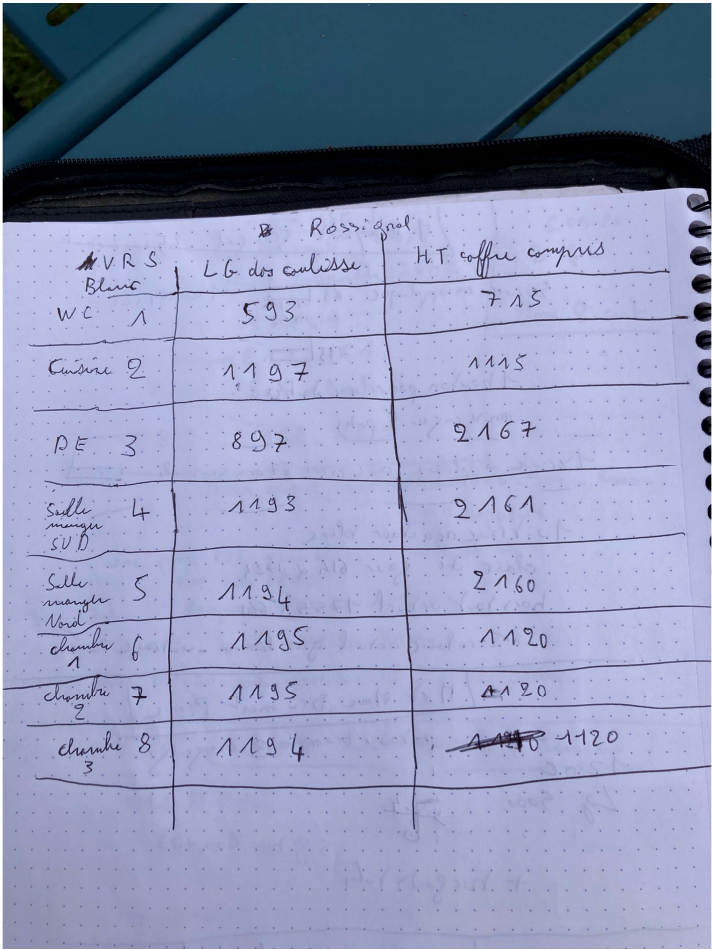 Rossignol
VRS LG dos coulisse HT coffre compris
Blanc
WC 1 593 715
Cuisine 2 1197 1115
PE 3 897 2167
Salle 4 1193 2161
manger
SUD
Salle 5 1194 2160
manger
Nord
chambre 6 1195 1120
1
chambre 7 1195 1120
2
chambre 8 1194 1120
3